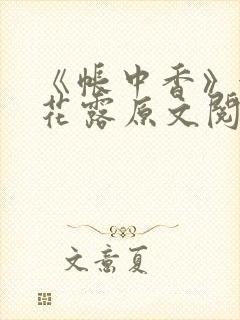 《帳中香》
花露原文
文意夏